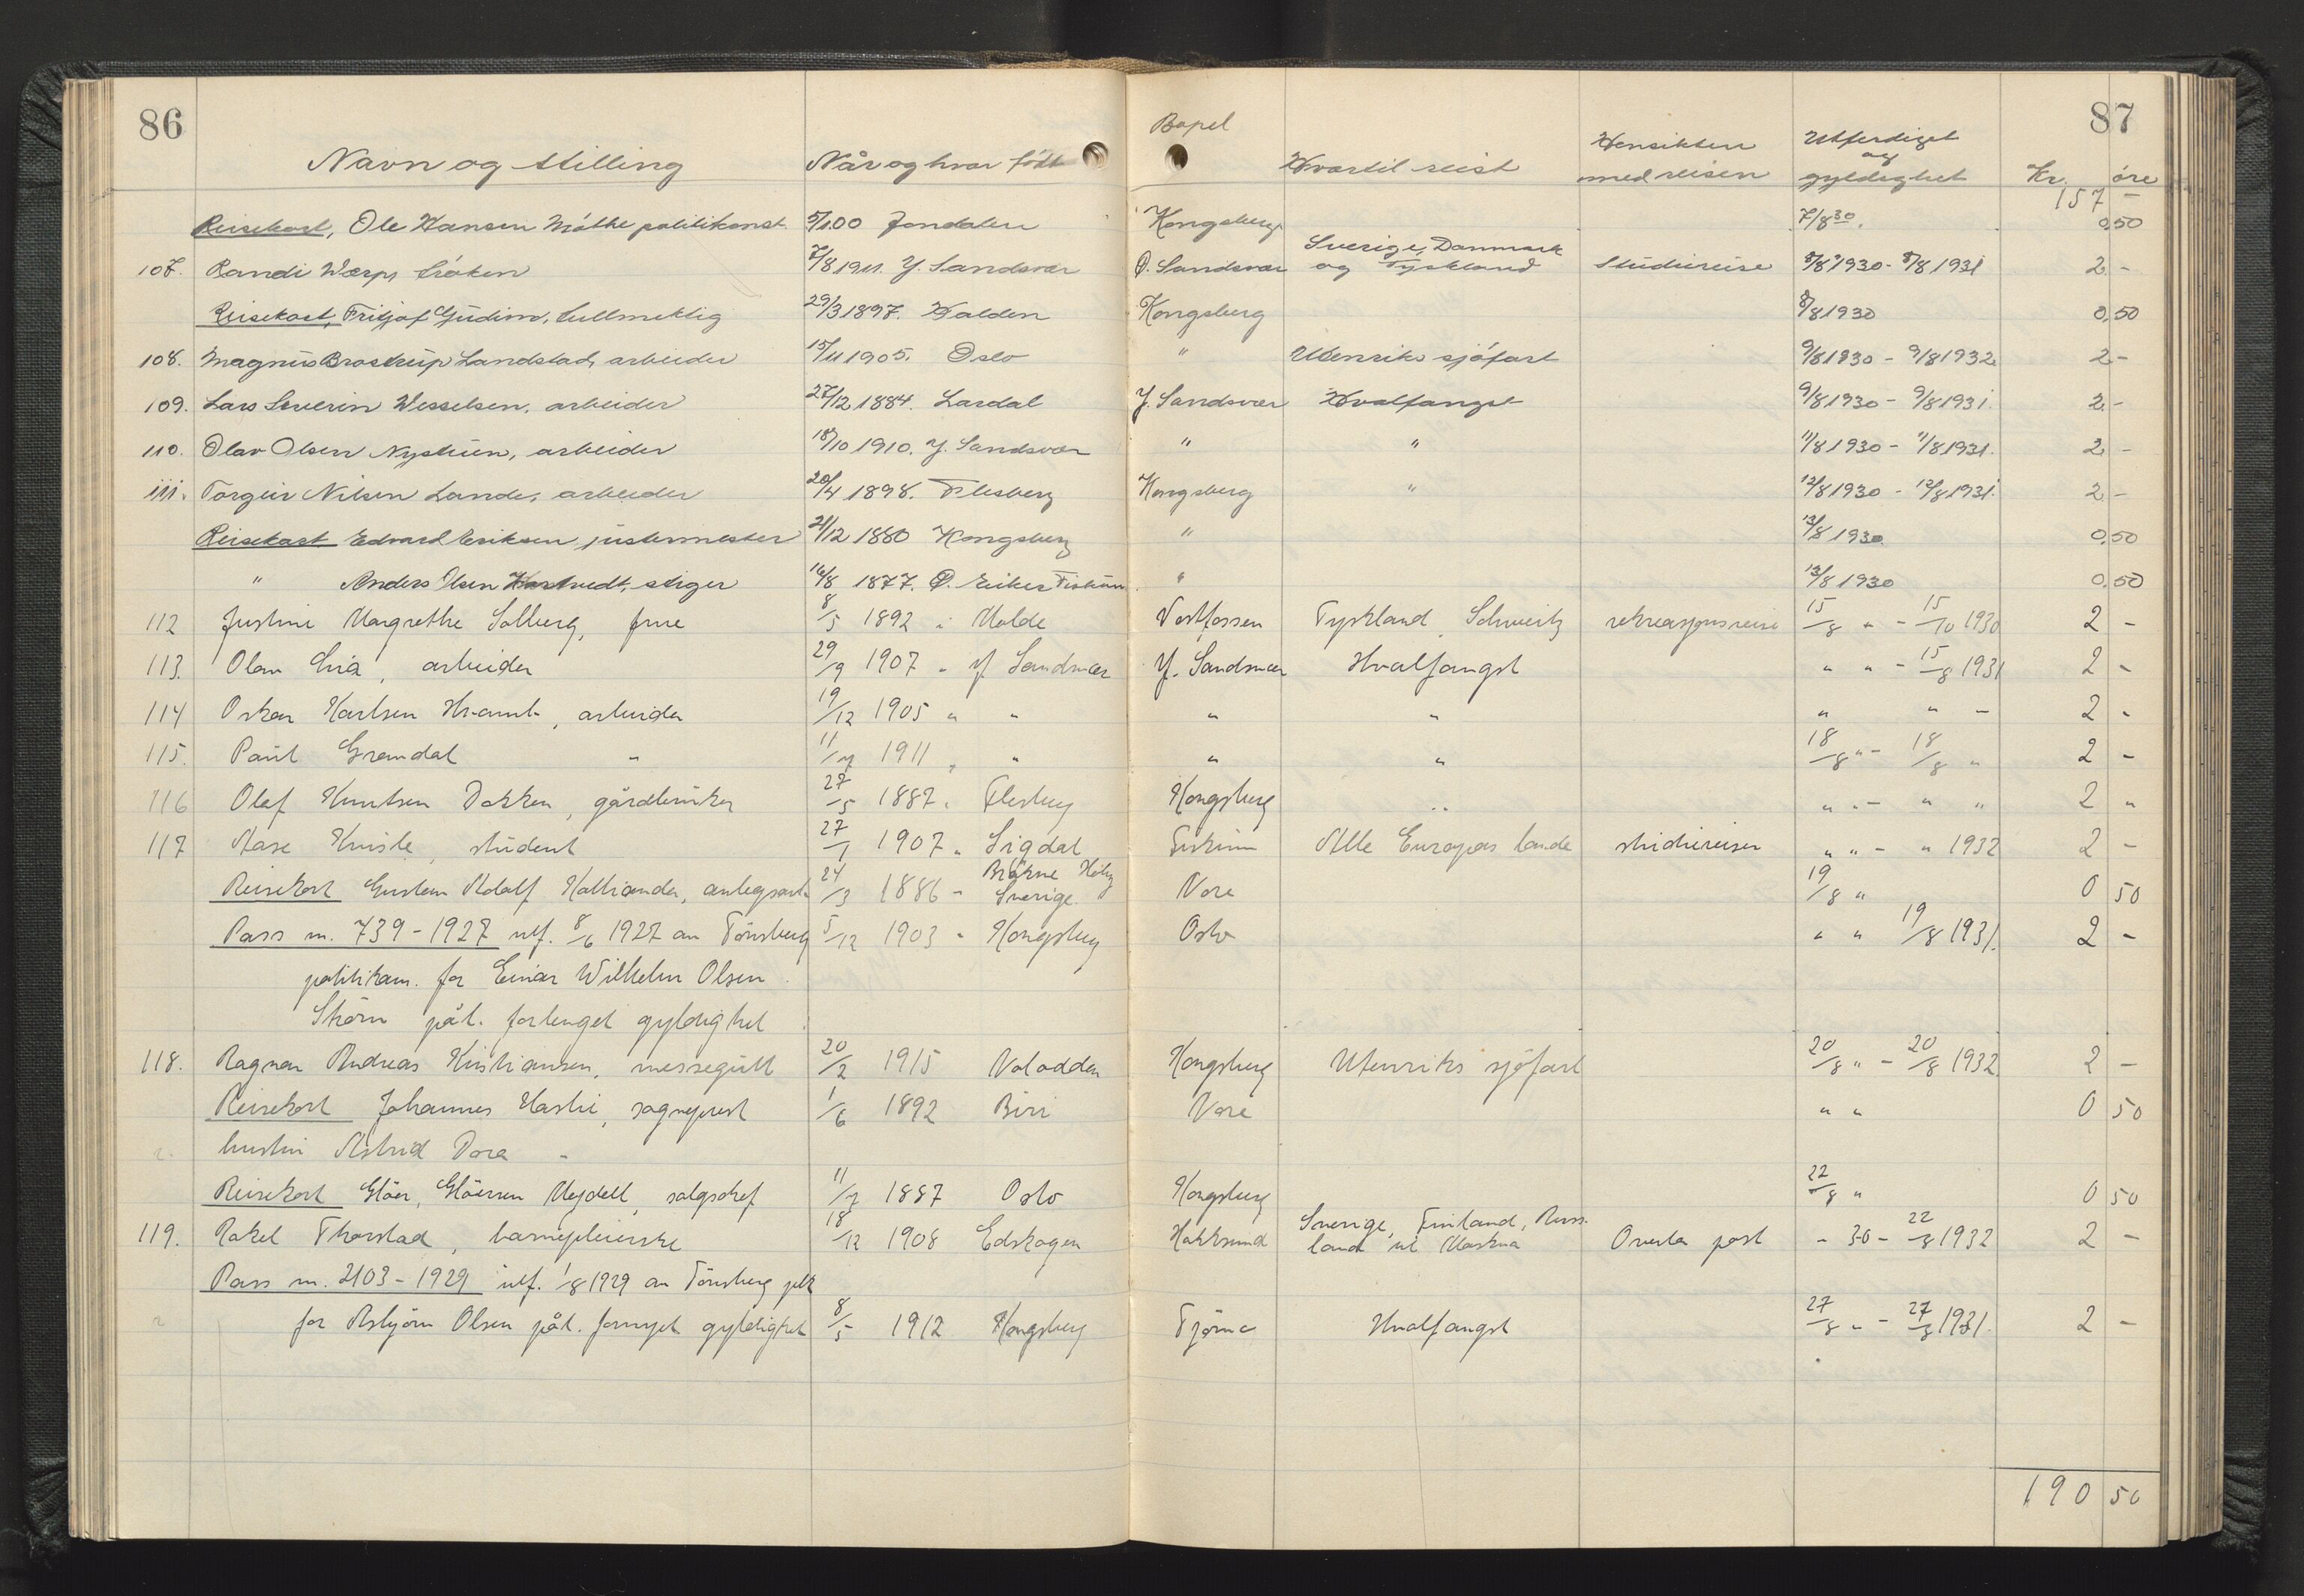 86
87
Navn og stilling Når og hvor født Bopel Hvortil reist Hensikten med reisen Utferdiget og gyldighet Kr. øre
157 -
Reisekort, Ole Hansen politikonst. 5/1.00 Jondalen Kongsberg 7/8 30. 0,50
107. Randi Værp, frøken 7/8 1911. Y. Sandsvær Ø. Sandsvær Sverige, Danmark og Tyskland Studiereise 8/8 1930 - 8/8 1931 2 -
Reisekort, Fritjof fullmektig 29/3 1897. Halden Kongsberg 8/8 1930 0,50
108. Magnus Brostrup Landstad, arbeider 15/11 1905. Oslo " Utenriks sjøfart 9/8 1930 - 9/8 1932 2 -
109. Lars Severin Wesselsen, arbeider 27/12 1884. Lardal Y. Sandsvær Hvalfangst 9/8 1930 - 9/8 1931. 2 -
110. Olav Olsen Nystuen, arbeider 18/10 1910. Y. Sandsvær " " 11/8 1930 - 11/8 1931. 2 -
111. Torgeir Nilsen Lande, arbeider 20/4 1898. Flesberg Kongsberg " 12/8 1930 - 12/8 1931. 2 -
Reisekort Edvard Eriksen, justermester 21/12 1880 Kongsberg " 12/8 1930. 0,50
" Anders Olsen stiger 16/8 1877. Ø. Eiker " 13/8 1930 0,50
112 Justine Margrethe Solberg, frue 8/5 1892 i Molde Vestfossen Tyskland, Schweitz rekreasjonsreise 15/8 " - 15/10 1930 2 -
113. Olav arbeider 29/9 1907 " Y. Sandsvær Y. Sandsvær Hvalfangst " " - 15/8 1931 2 -
114 Oskar Karlsen arbeider 19/12 1905 " " " " " " - 2 -
115. Paul Grøndal " 11/7 1911 " " " " 18/8 " - 18/8 " 2 -
116 Olaf Knutsen Dokken, gårdbruker 27/5 1887 " Flesberg Kongsberg " " " - " " 2 "
117 Aase student 27/1 1907 " Sigdal Fiskum Alle Europas lande studiereiser " " - " 1932 2 -
Reisekort Gustav Adolf anlegsarb. 24/3 1886 - Bräkne Hoby Sverige. Nore 19/8 " 0 50
Pass nr. 739-1927 utf. 8/6 1927 av Tönsberg 5/12 1903 " Kongsberg Oslo " " 19/8 1931. 2 -
politikam. for Einar Wilhelm Olsen
Strøm påt. forlenget gyldighet
118. Ragnar Andreas Kristiansen, messegutt 20/2 1915 Notodden Kongsberg Utenriks sjöfart 20/8 " - 20/8 1932. 2 -
Reisekort Johannes sogneprest 1/6 1892 Biri Nore " " 0 50
hustru Astrid Dora "
Reisekort Gløer, Gløersen Mejdell, salgschef 11/7 1887 Oslo Kongsberg 22/8 " 0 50
119. Rakel Thorstad, barnepleierske 18/12 1908 Edskogen Hokksund Sverige, Finland, Russland til Moskva Overta post - 30 - 22/8 1932 2 -
Pass nr. 2103-1929 utf. 1/8 1929 av Tönsberg plk
for Asbjørn Olsen påt. fornyet gyldighet 8/5 1912 Kongsberg Tjøme Hvalfangst 27/8 " - 27/8 1931. 2 -
190 50